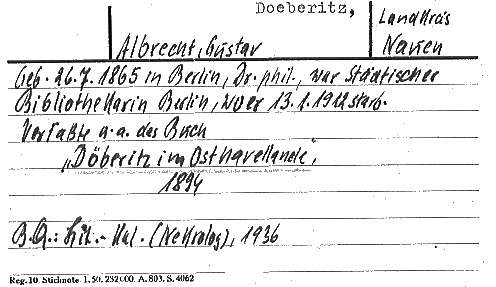 Doeberitz,
Landkreis
Nauen
Albrecht, Gustav
Geb. 26.7. 1865 in Berlin, Dr. phil., war Städtischer
Bibliothekar in Berlin, wo er 13.1.1912 starb.
Verfaßte u.a. das Buch
„Döberitz im Osthavellande",
1894
B.Q.: Lit.- Kal. (Nekrolog), 1936
Reg. 10. Stichnote. 1. 50. 232000. A. 803. S. 4062